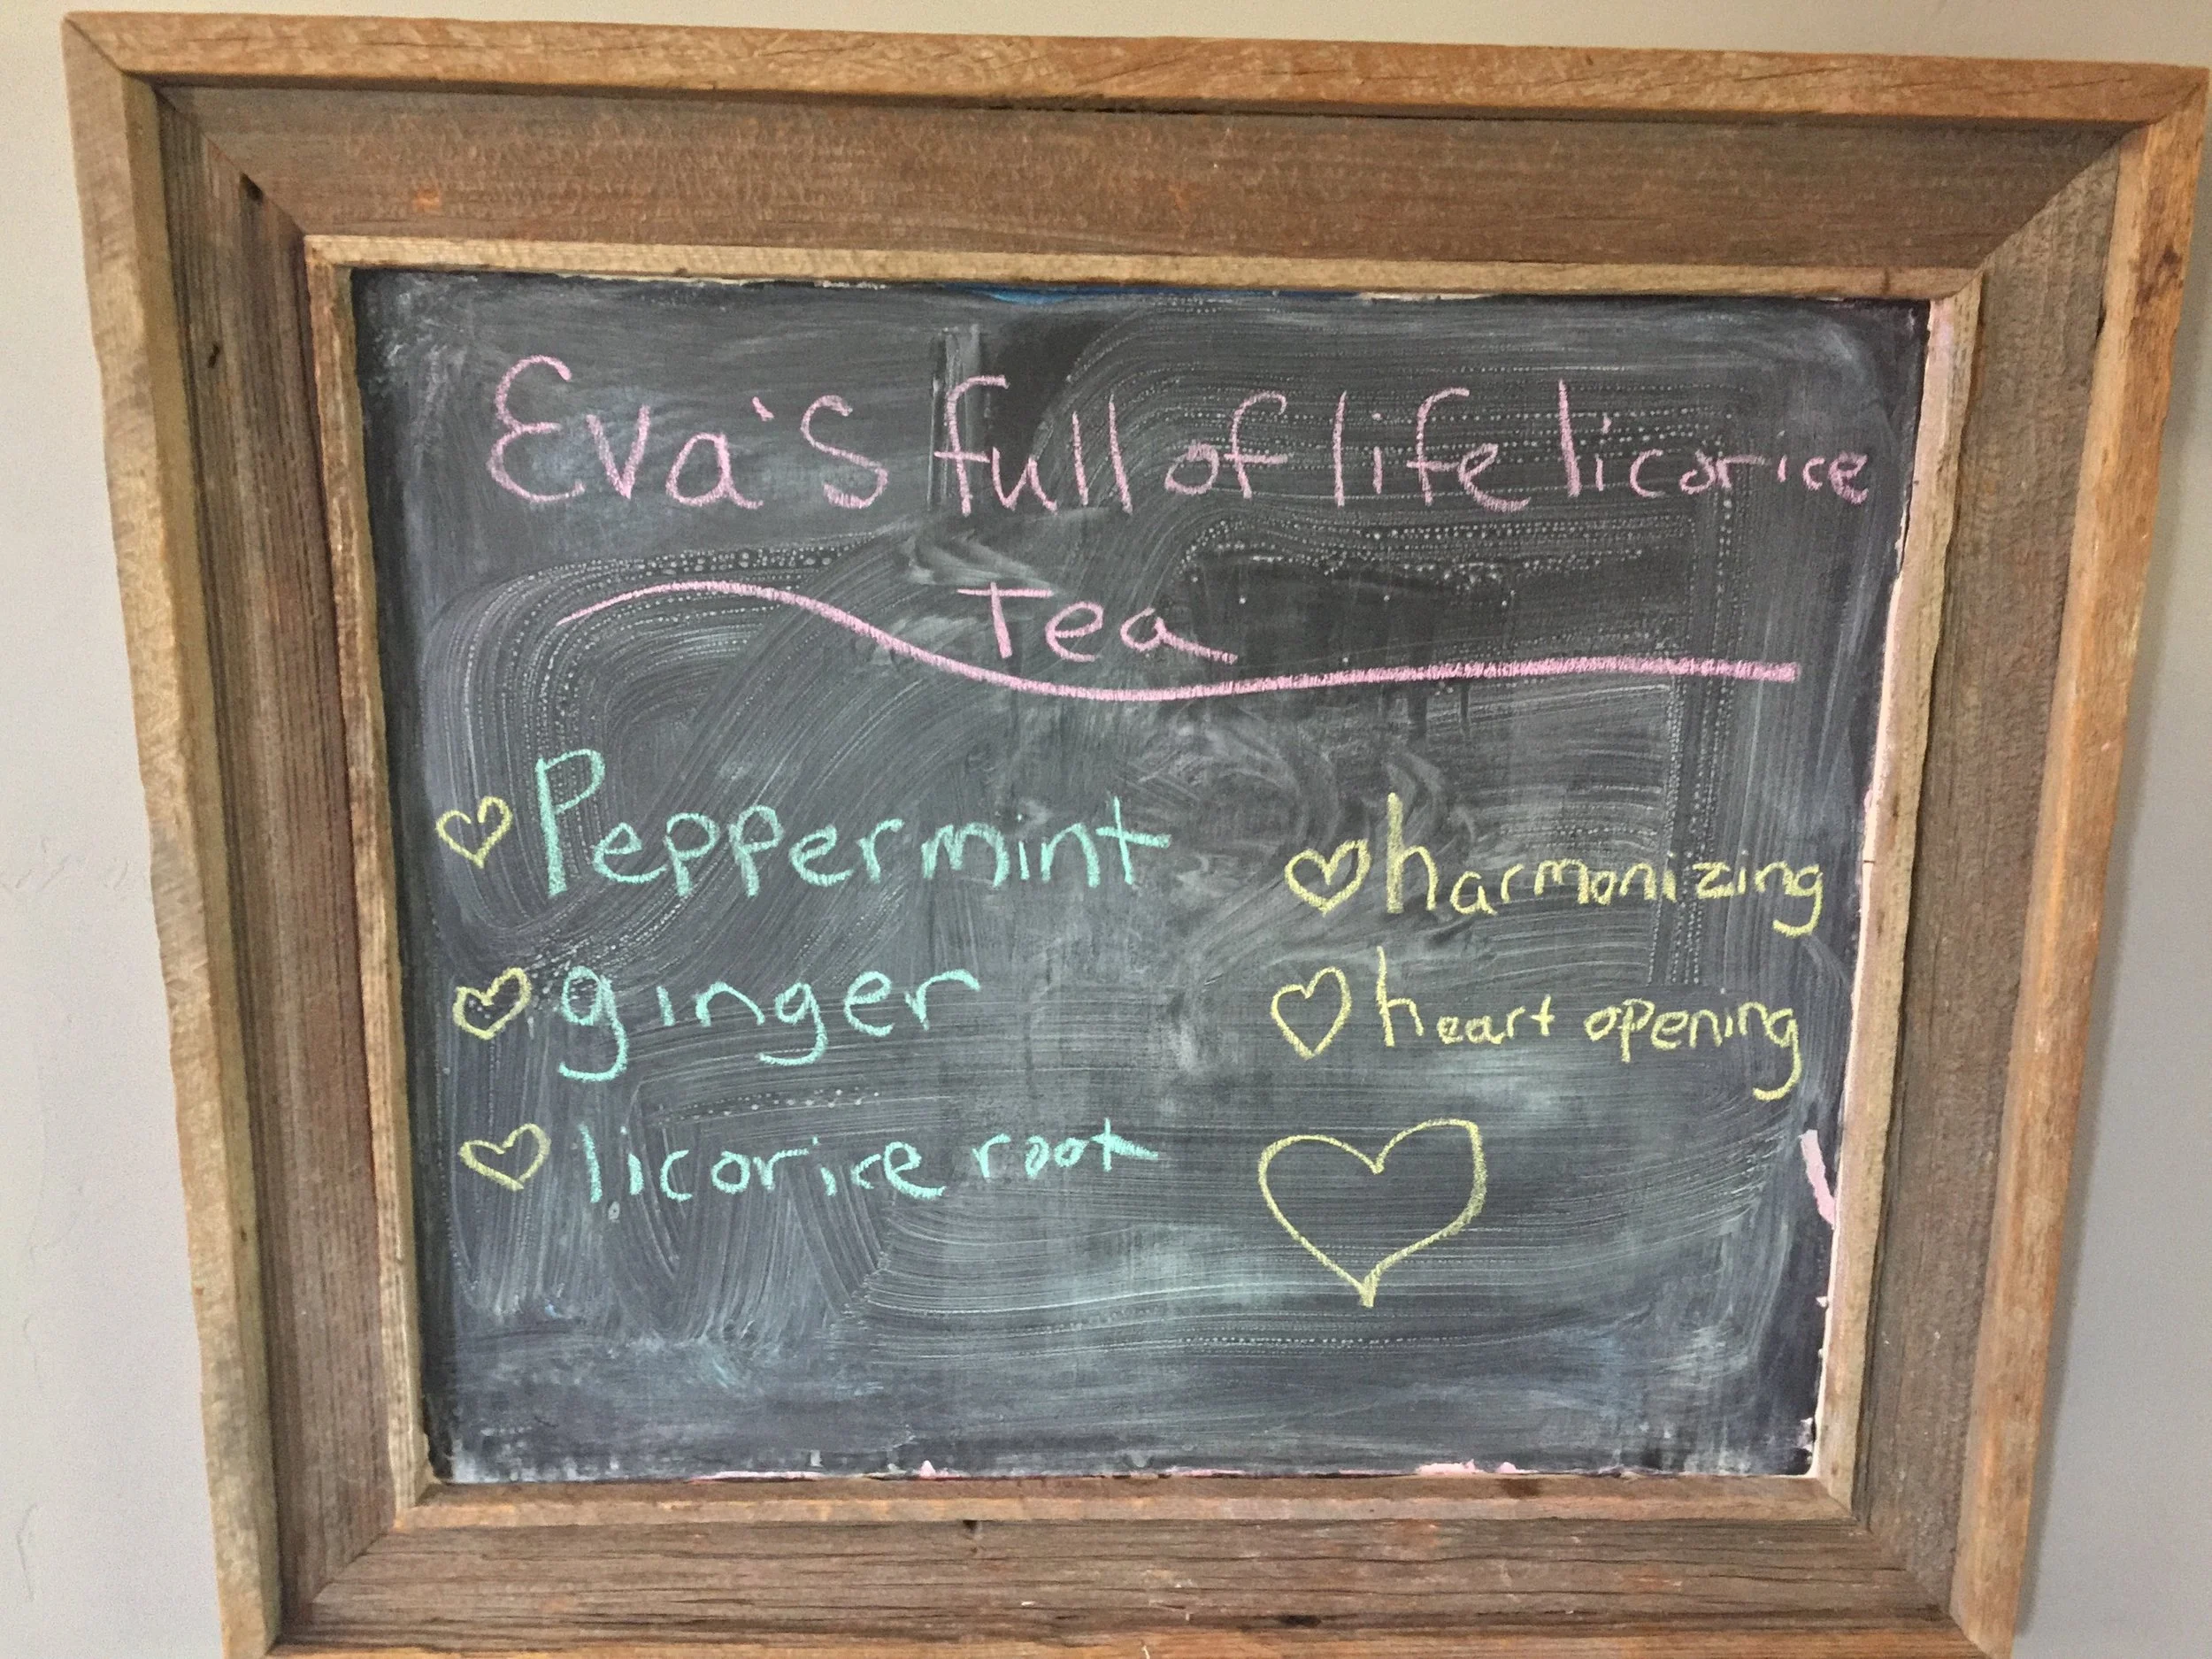 Eva's full of life licorice
Tea
Peppermint
ginger
licorice root
harmonizing
heart opening